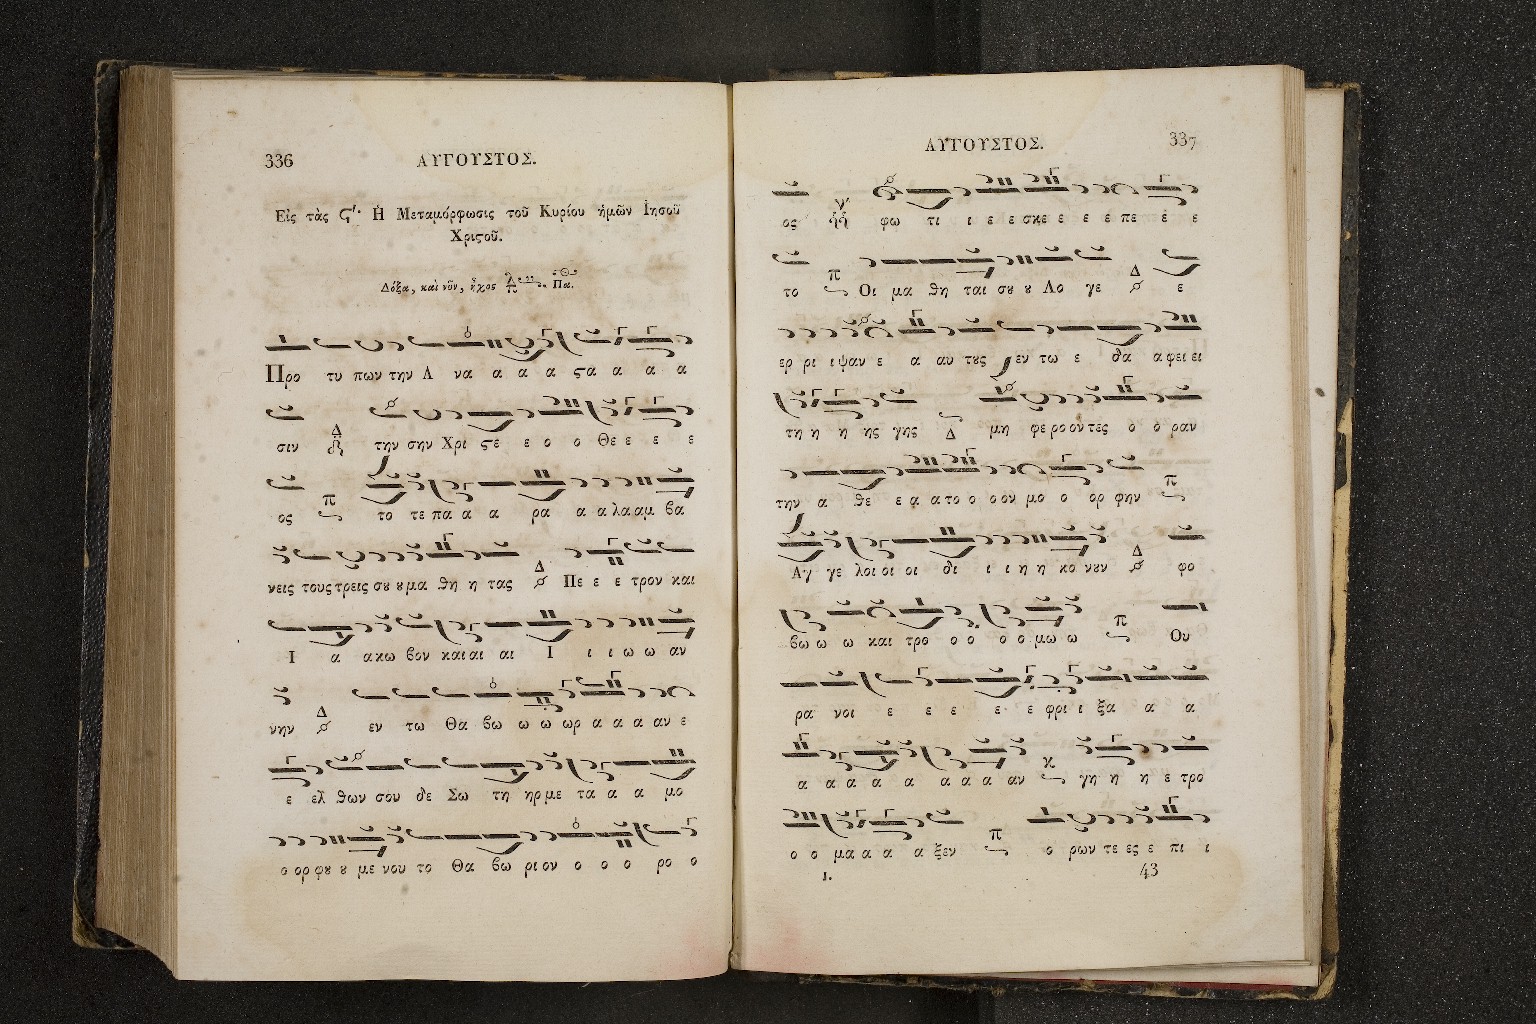 336
ΑΥΓΟΥΣΤΟΣ.
Εἰς τὰς ϛ′. Ἡ Μεταμόρφωσις τοῦ Κυρίου ἡμῶν Ἰησοῦ
Χριϛοῦ.
Δόξα, καὶ νῦν, ἦχος Πα.
Προ τυ πων την Α να α α α ϛα α α α
σιν Δ την σην Χρι ϛε ε ο ο Θε ε ε ε
ος π το τε πα α α ρα α α λα αμ βα
νεις τους τρεις σου ου μα θη η τας Δ Πε ε ε τρον και
Ι α ακω βον και αι αι Ι ι ι ω ω αν
νην Δ εν τω Θα βω ω ω ωρ α α α αν ε
ε ελ θων σου δε Σω τη ηρ με τα α α μο
ο ορ φου ου με νου το Θα βω ρι ον ο ο ο ρο ο
ΑΥΓΟΥΣΤΟΣ.
337
ος φω τι ι ε ε σκε ε ε ε πε ε ε
το π Οι μα θη ται σου ου Λο γε Δ ε
ερ ρι ιψαν ε α αυ τους εν τω ε δα α φει ει
τη η η ης γης Δ μη φε ρο οντες ο ο ραν
την α θε ε α α το ο ο ον μο ο ορ φην π
Αγ γε λοι οι οι δι ι ι η η κο νουν Δ φο
βω ω ω και τρο ο ο ο ο μω ω π Ου
ρα νοι ε ε ε ε ε φρι ι ξα α α
α α α α α α α α αν κ γη η η ε τρο
ο ο μα α α α ξεν π ο ρων τε ες ε πι ι
1.
43